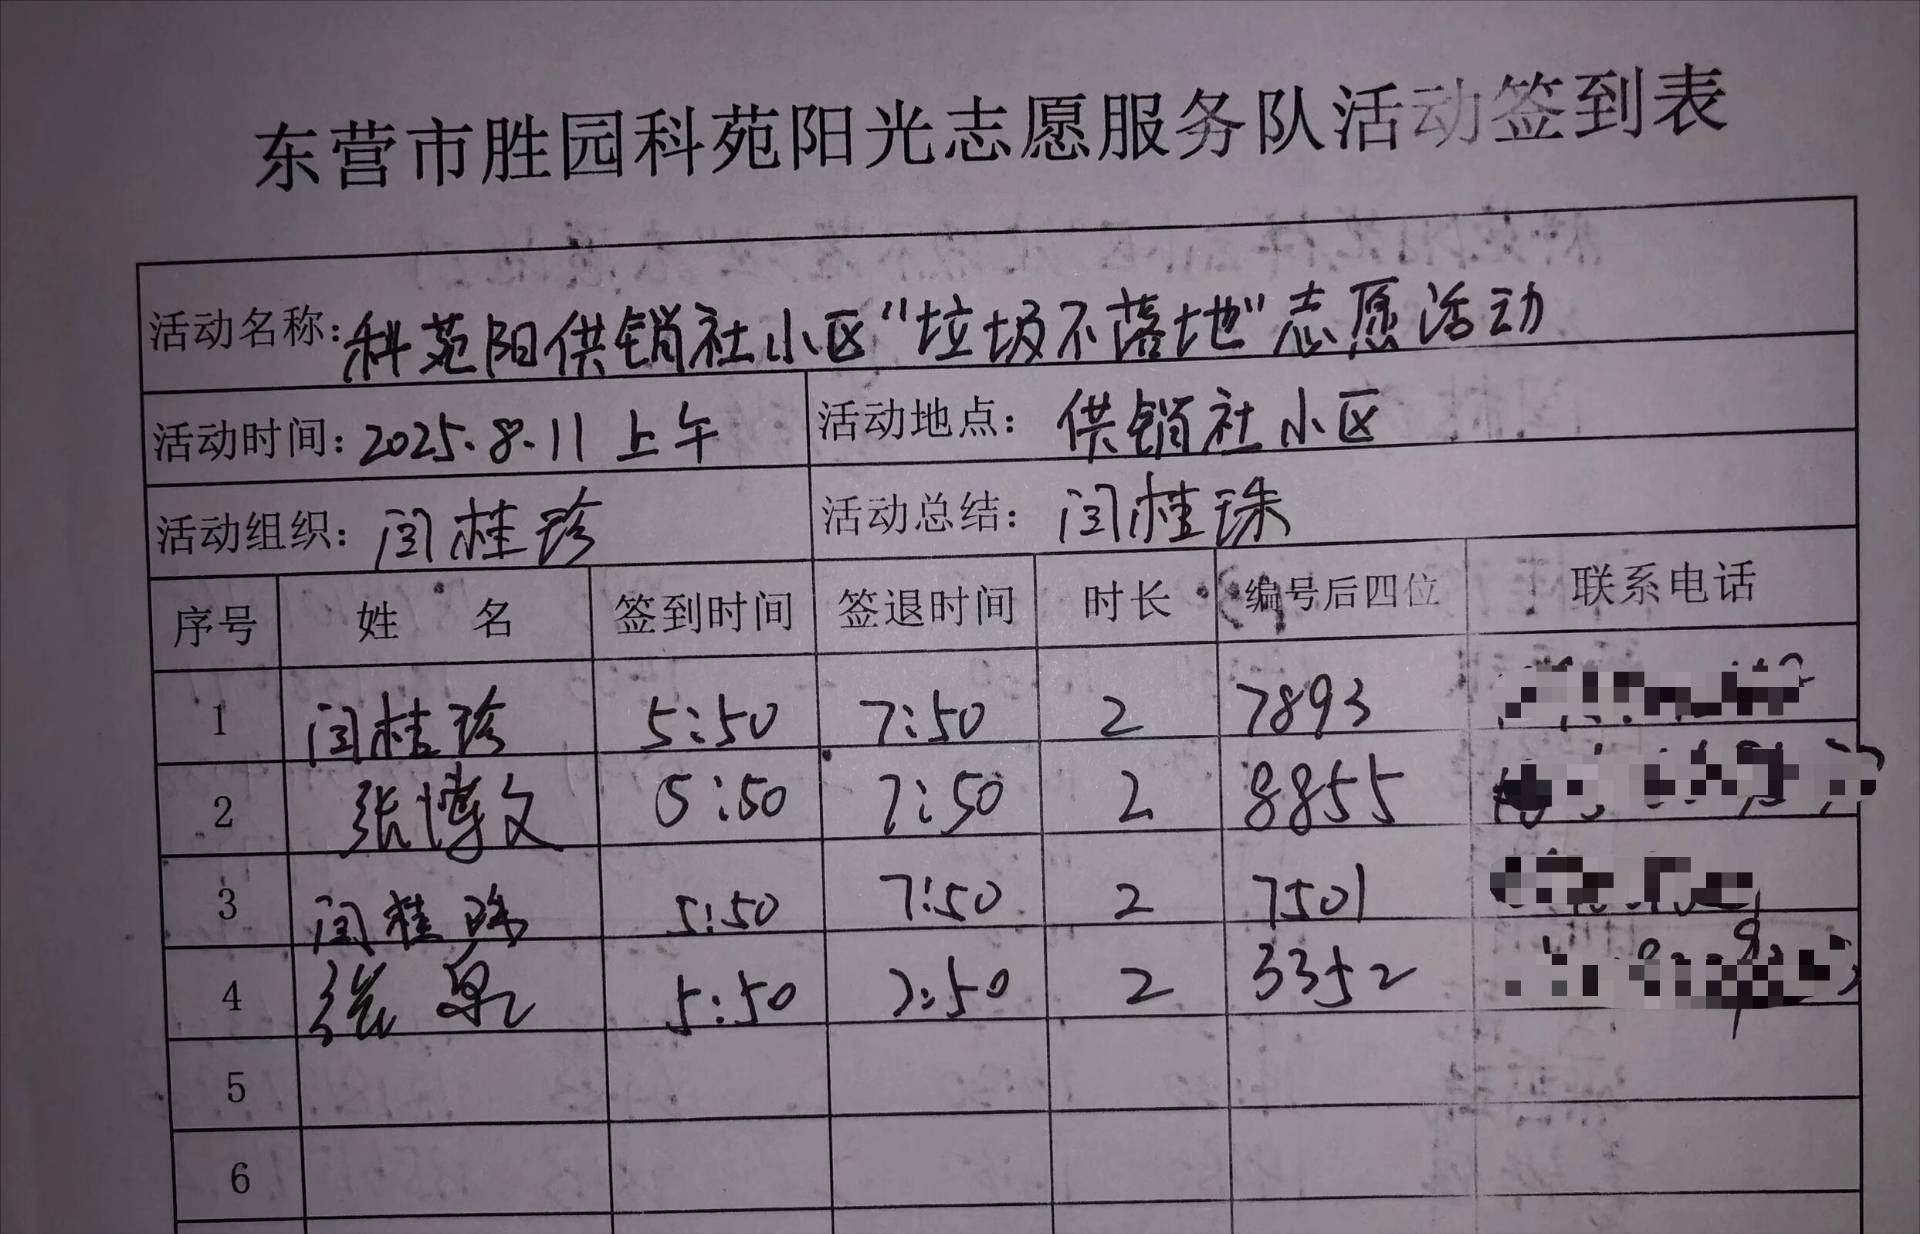 东营市胜园科苑阳光志愿服务队活动签到表
活动名称：科苑阳供销社小区“垃圾不落地”志愿活动
活动时间：2025.8.11 上午 活动地点：供销社小区
活动组织：闫桂珍 活动总结：闫桂珠
序号 姓 名 签到时间 签退时间 时长 编号后四位 联系电话
1 闫桂珍 5:50 7:50 2 7893
2 张博文 5:50 7:50 2 8855
3 闫桂珠 5:50 7:50 2 7501
4 张 5:50 7:50 2 3352
5
6